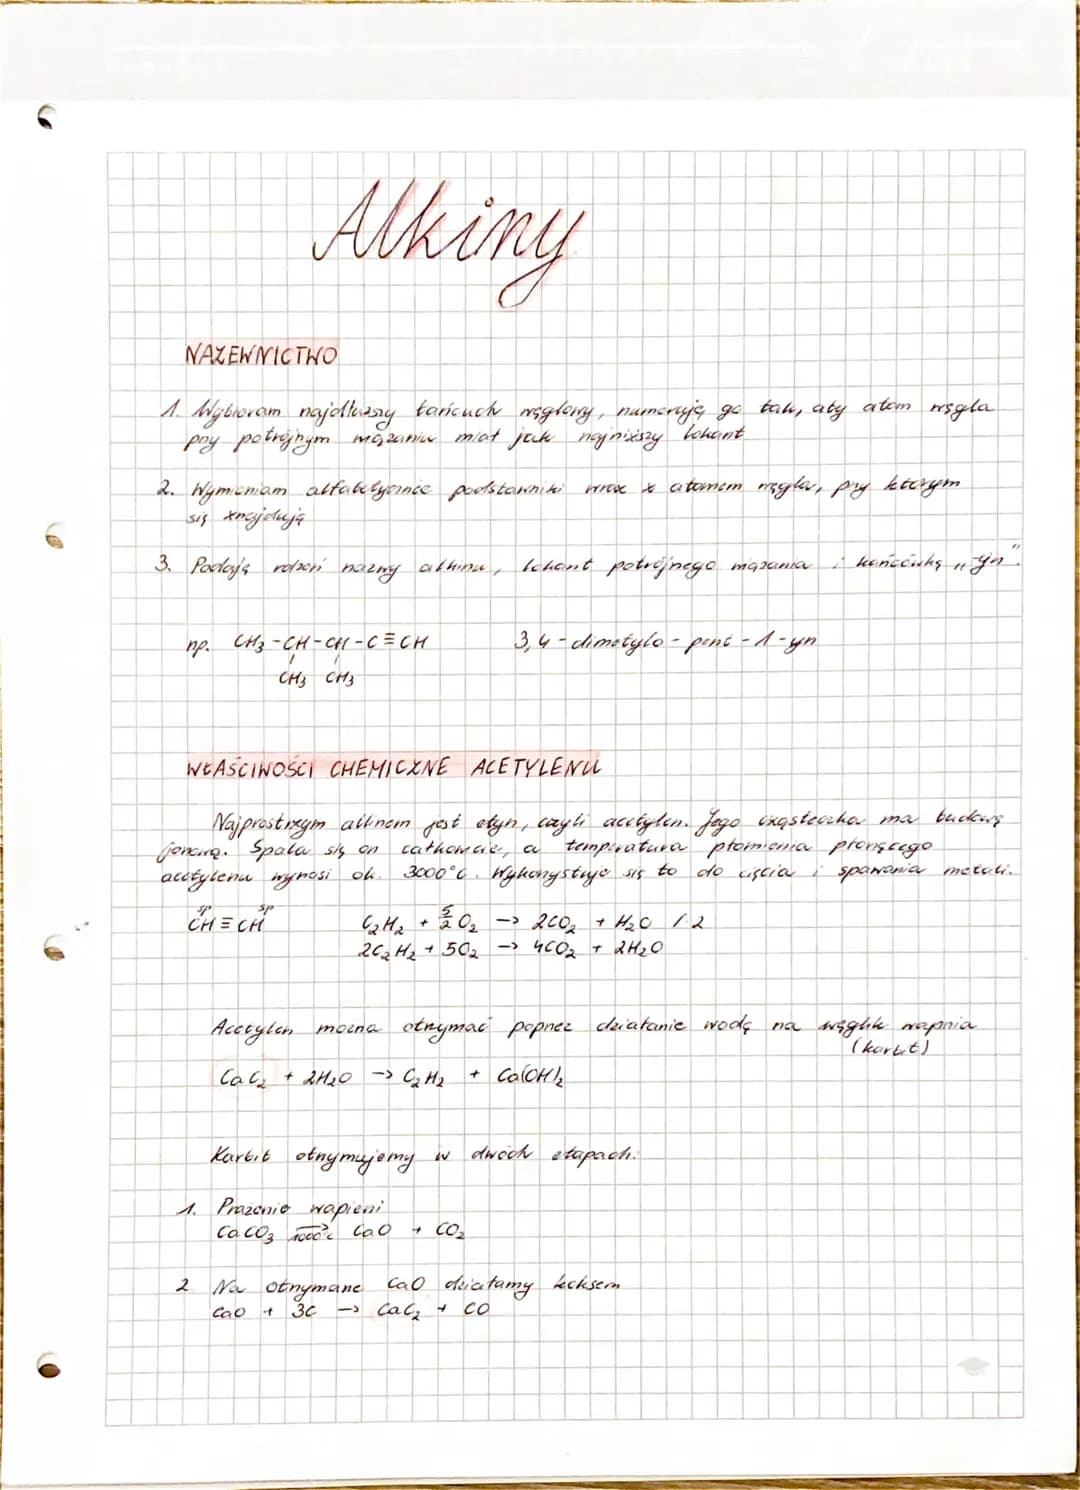 Alkiny
NAZEWNICTWO
1. Wybieram najdłuższy łańcuch węglowy, numeruję go tak, aby atom węgla
przy potrójnym wiązaniu miał jak najniższy lokant
2. Wymieniam alfabetycznie podstawniki wraz z atomem węgla, przy którym
się znajdują
3. Podaję rdzeń nazwy alkinu, lokant potrójnego wiązania i końcówkę „-yn".
np. CH3-CH-CH-C≡CH 3,4-dimetylo-pent-1-yn
CH3 CH3
WŁAŚCIWOŚCI CHEMICZNE ACETYLENU
Najprostszym alkinem jest etyn, czyli acetylen. Jego cząsteczka ma budowę
liniową. Spala się on całkowicie, a temperatura płomienia płonącego
acetylenu wynosi ok. 3000°C. Wykorzystuje się to do cięcia i spawania metali.
sp sp
CH≡CH C2H2 + 5/2 O2 -> 2CO2 + H2O /·2
2C2H2 + 5O2 -> 4CO2 + 2H2O
Acetylen można otrzymać poprzez działanie wodą na węglik wapnia
(karbit)
CaC2 + 2H2O -> C2H2 + Ca(OH)2
Karbit otrzymujemy w dwóch etapach:
1. Prażenie wapieni
CaCO3 →1000°C CaO + CO2
2 Na otrzymane CaO działamy koksem
CaO + 3C -> CaC2 + CO